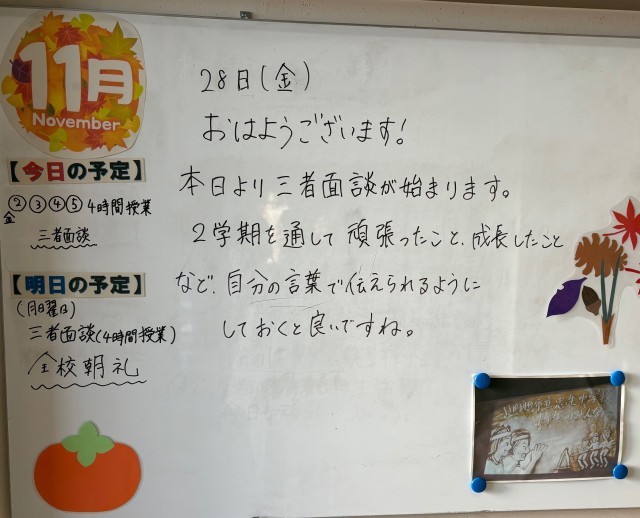 11月
November
【今日の予定】
②③④⑤ 4時間授業
金
三者面談
【明日の予定】
(月曜日)
三者面談(4時間授業)
全校朝礼
28日(金)
おはようございます!
本日より三者面談が始まります。
2学期を通して頑張ったこと、成長したこと
など、自分の言葉で伝えられるように
しておくと良いですね。